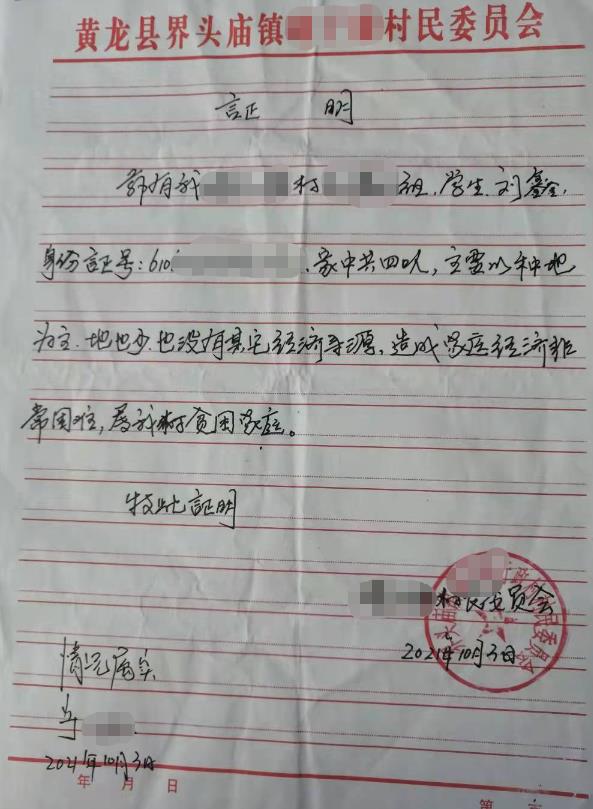 黄龙县界头庙镇 村民委员会
証 明
兹有我 村 组,学生刘鑫,
身份証号:610. 家中共四口,主要以种地
为主.地也少.也没有其它经济来源,造成家庭经济非
常困难,属我村贫困家庭。
特此証明
村民委员会
2021年10月3日
情况属实
2021年10月3日
年 月 日
第